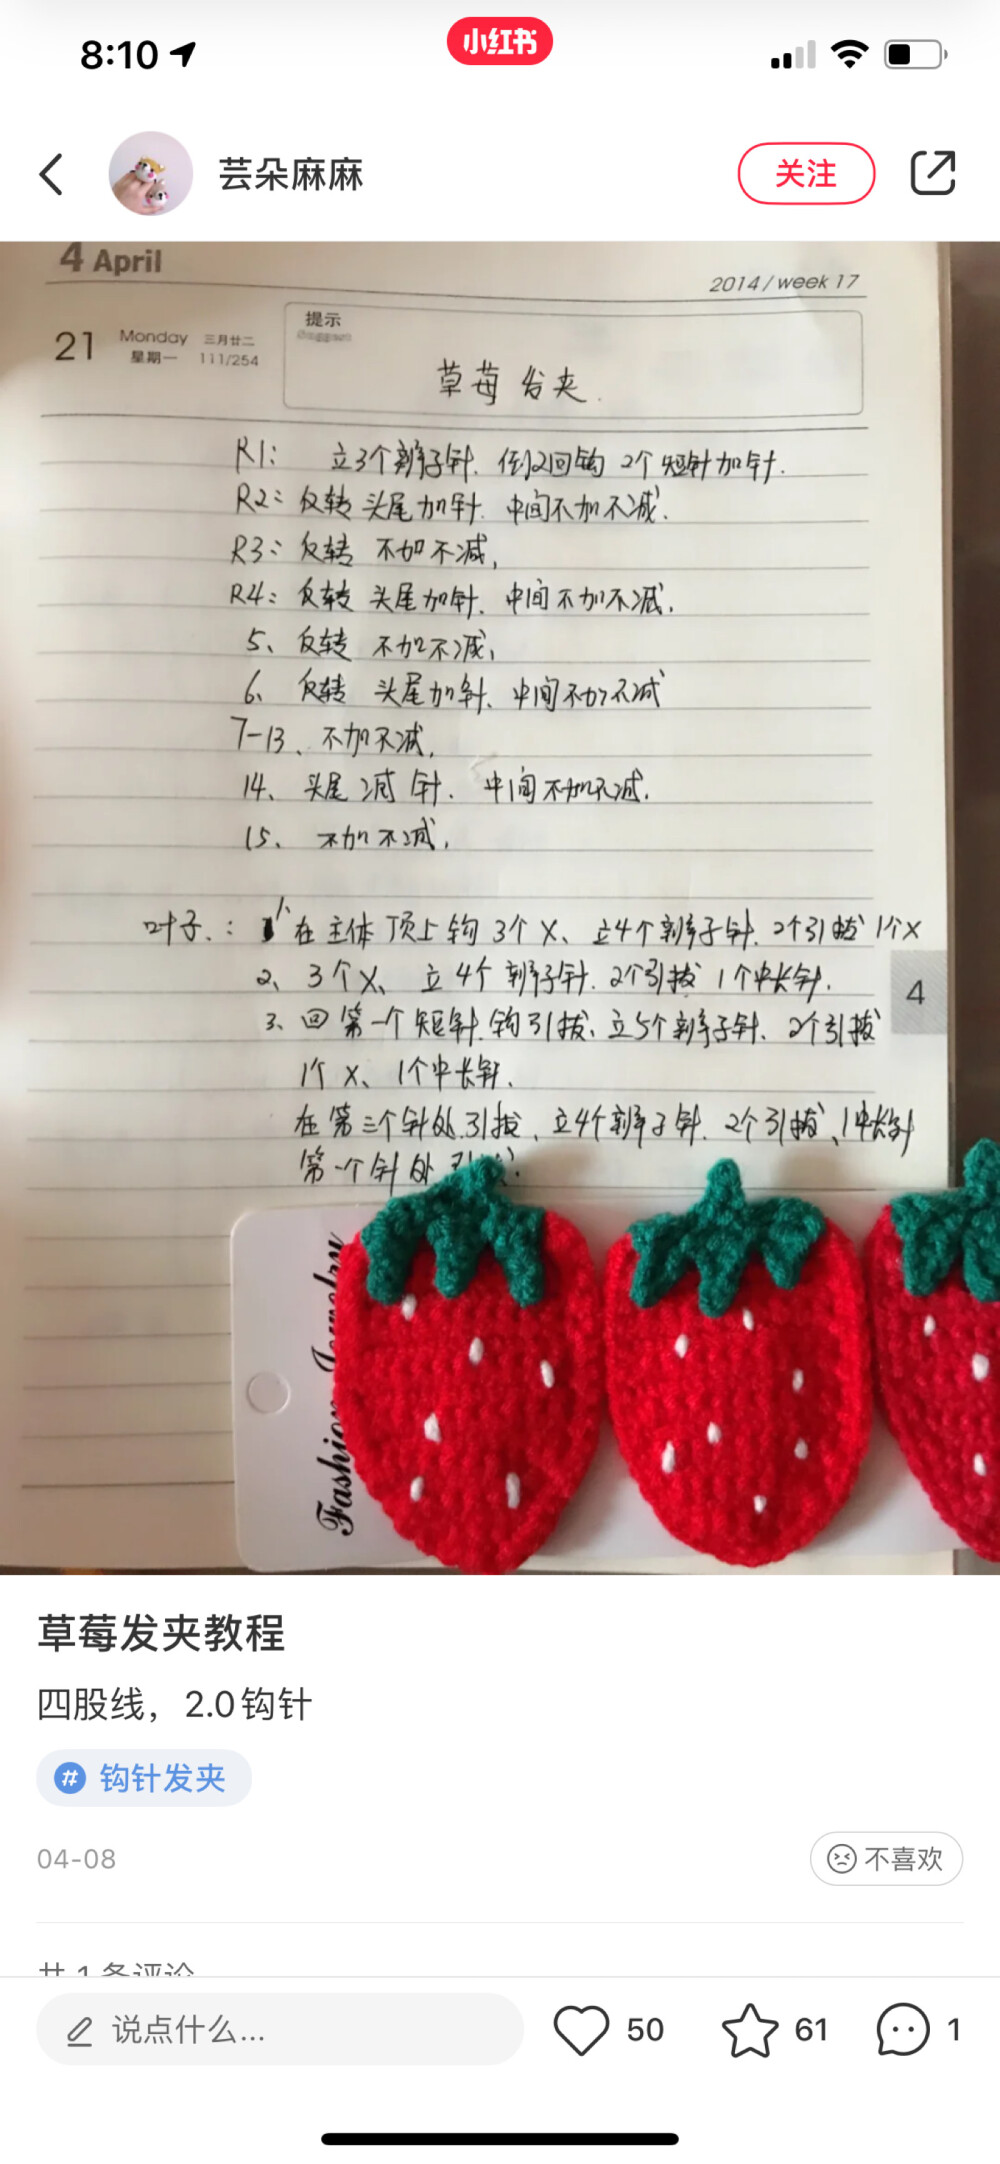 8:10
小红书
芸朵麻麻
关注
4 April
2014/week 17
21 Monday 三月廿二
星期一 111/254
提示
草莓 发夹.
R1: 立3个辫子针. 倒2回钩 2个短针加针.
R2: 反转 头尾加针. 中间不加不减.
R3: 反转 不加不减,
R4: 反转 头尾加针. 中间不加不减.
5、反转 不加不减,
6、反转 头尾加针. 中间不加不减
7-13、不加不减.
14、头尾减针. 中间不加不减.
15、不加不减.
叶子.: 1、在主体顶上钩3个X、立4个辫子针. 2个引拔 1个X
2、3个X、立4个辫子针. 2个引拔 1个中长针.
3、回第一个短针.钩引拔、立5个辫子针. 2个引拔
1个X、1个中长针.
在第三个针处.引拔、立4个辫子针. 2个引拔、1中长针
第一个针处 引拔.
4
Fashion Jewelry
草莓发夹教程
四股线，2.0钩针
# 钩针发夹
04-08
不喜欢
共 1 条评论
说点什么...
50
61
1